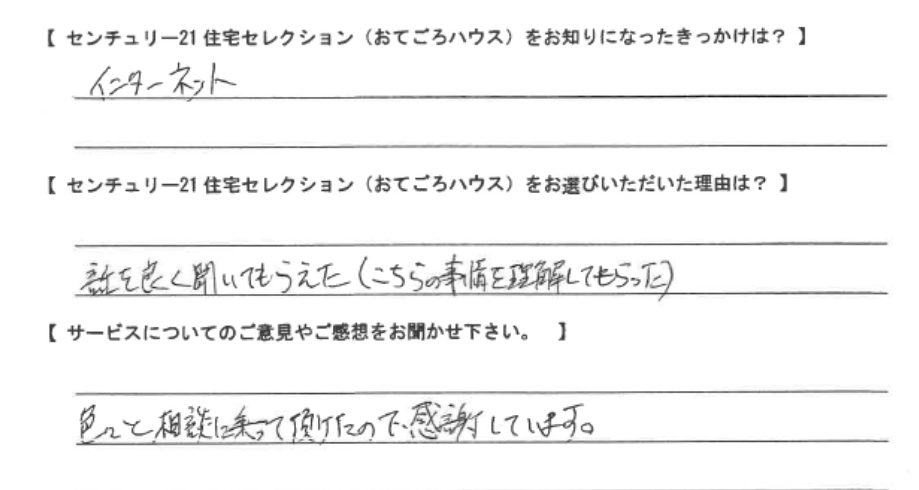 【 センチュリー21 住宅セレクション（おてごろハウス）をお知りになったきっかけは？ 】
インターネット
【 センチュリー21 住宅セレクション（おてごろハウス）をお選びいただいた理由は？ 】
話を良く聞いてもらえた（こちらの事情を理解してもらった）
【 サービスについてのご意見やご感想をお聞かせ下さい。 】
色々と相談に乗って頂けたので、感謝しています。